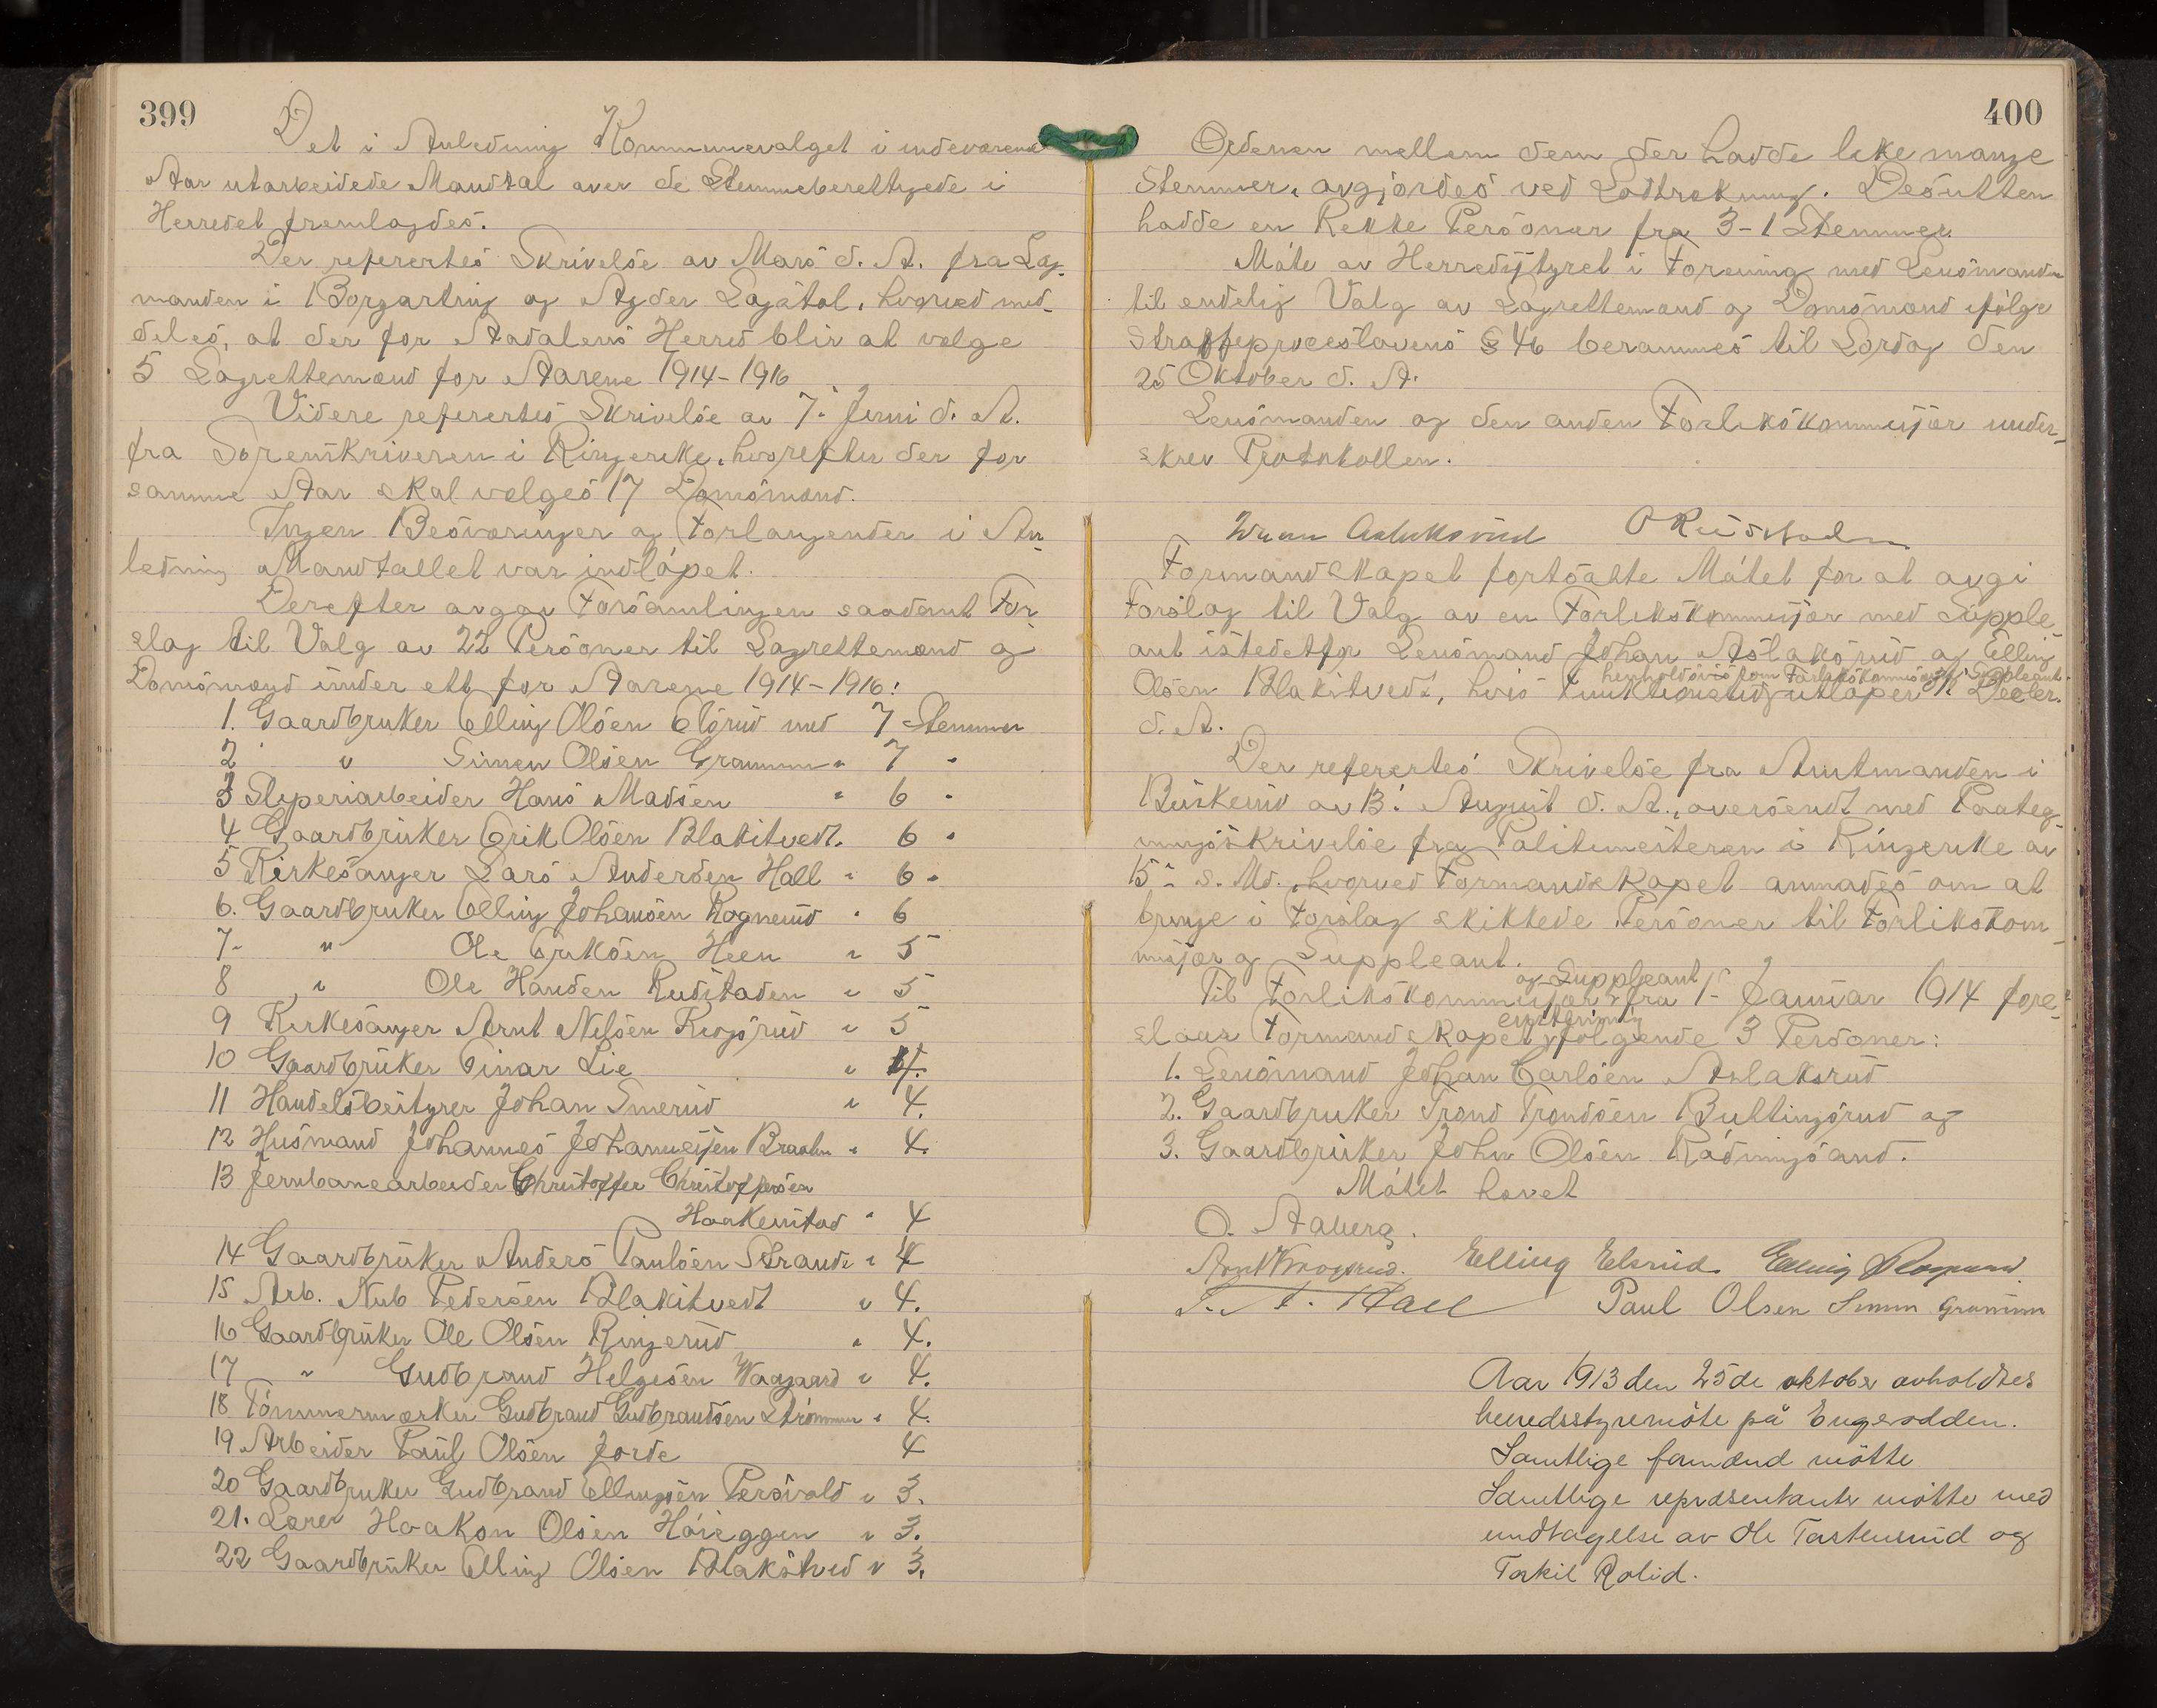 399
Det i Anledning Kommunevalget i indeværende
Aar utarbeidede Mandtal over de Stemmeberettigede i
Herredet fremlagdes.
Der refertes Skrivelse av Mars d. A. fra Lag-
manden i Borgarting og Agder Lagstol, hvorved med-
deles, at der for Aadalens Herred blir at vælge
5 Lagrettemænd for Aarene 1914-1916
Videre refertes Skrivelse av 7. Juni d. A.
fra Sorenskriveren i Ringerike, hvorefter der for
samme Aar skal vælges 17 Domsmænd.
Ingen Besværinger og Forlangender i An-
ledning Mandtallet var indløpet.
Derefter avgav Forsamlingen saadant For-
slag til Valg av 22 Personer til Lagrettemænd og
Domsmænd under ett for Aarene 1914-1916:
1. Gaardbruker Elling Olsen Elsrud med 7 Stemmer
2 " Simen Olsen Grammen " 7 "
3 Sliperiarbeider Hans Madsen " 6 "
4 Gaardbruker Erik Olsen Blakstvedt. 6 "
5 Kirkesanger Lars Andersen Hall " 6 "
6. Gaardbruker Elling Johansen Rognerud " 6
7- " Ole Eriksen Heen " 5
8 " Ole Hansen Rudstaden " 5
9 Kirkesanger Arnt Nilsen Krogsrud " 5
10 Gaardbruker Einar Lie " 4.
11 Handelsbestyrer Johan Smerud " 4.
12 Husmand Johannes Johannesen Braaten " 4.
13 Jernbanearbeider Christoffer Christoffersen
Haakenstad " 4
14 Gaardbruker Anders Paulsen Strande " 4
15 Arb. Nub Pedersen Blakstvedt " 4.
16 Gaardbruker Ole Olsen Ringerud " 4.
17 " Gudbrand Helgesen Waagaard " 4.
18 Tømmermærker Gudbrand Gudbrandsen Strømmen " 4.
19 Arbeider Paul Olsen Jorde 4
20 Gaardbruker Gudbrand Ellingsen Persvold " 3.
21. Lærer Haakon Olsen Høieggen " 3.
22 Gaardbruker Elling Olsen Blakstved " 3.
400
Ordenen mellem dem der hadde like mange
Stemmer, avgjordes ved Lodtrekning. Desutten
hadde en Rekke Personer fra 3-1 Stemmer.
Møte av Herredstyret i Forening med Lensmanden
til endelig Valg av Lagrettemænd og Domsmænd ifølge
Straffeproceslovens § 46 berammes til Lørdag den
25 Oktober d. A.
Lensmanden og den anden Forlikskommissær under-
skrev Protokollen.
Johan Aslaksrud O Rudstaden
Formandskapet fortsatte Møtet for at avgi
Forslag til Valg av en Forlikskommissær med Supple-
ant istedetfor Lensmand Johan Aslaksrud og Elling
henholdsvis som Forlikskommissær og Suppleant
Olsen Blakstvedt, hvis Funktionstid utløper Decbr.
d. A.
Der refertes Skrivelse fra Amtmanden i
Buskerud av 13. August d. A., oversendt med Paateg-
ningsskrivelse fra Politimesteren i Ringerike av
15. s. Md., hvorved Formandskapet anmodes om at
bringe i Forslag skikkede Personer til Forlikskom-
missær og Suppleant.
og Suppleant
Til Forlikskommissær fra 1. Januar 1914 fore-
enstemmig
slaar Formandskapet følgende 3 Personer:
1. Lensmand Johan Carlsen Aslaksrud
2. Gaardbruker Trond Trondsen Bullingsrud og
3. Gaardbruker John Olsen Rådningsand.
Møtet hævet
O. Aaberg.
Arnt Krogsrud. Elling Elsrud. Elling Rognerud
L. A. Hall Paul Olsen Simen Grammen
Aar 1913 den 25de oktober avholdtes
herredsstyremøte på Engerodden.
Samtlige formænd møtte
Samtlige repræsentanter møtte med
undtagelse av Ole Tosterud og
Torkil Rolid.